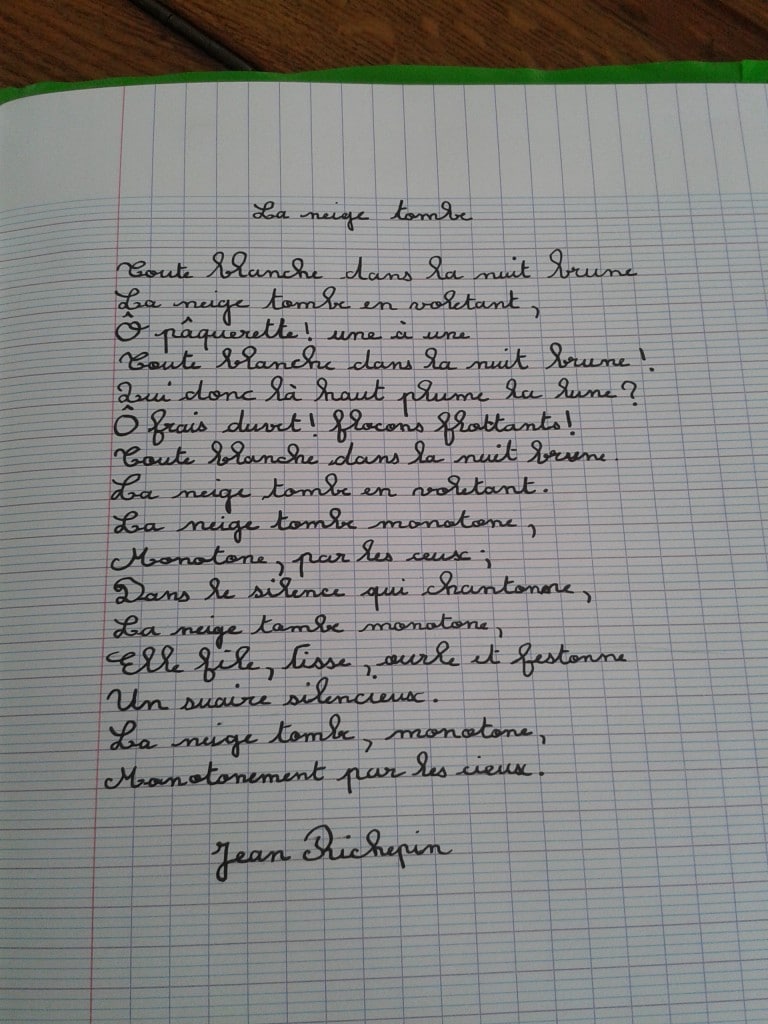 La neige tombe
Toute blanche dans la nuit brune
La neige tombe en voletant,
Ô pâquerette! une à une
Toute blanche dans la nuit brune!
Qui donc là haut plume la lune?
Ô frais duvet! flocons flottants!
Toute blanche dans la nuit brune.
La neige tombe en voletant.
La neige tombe monotone,
Monotone, par les ceux;
Dans le silence qui chantonne,
La neige tombe monotone,
Elle file, tisse, ourle et festonne
Un suaire silencieux.
La neige tombe, monotone,
Monotonement par les cieux.
Jean Richepin